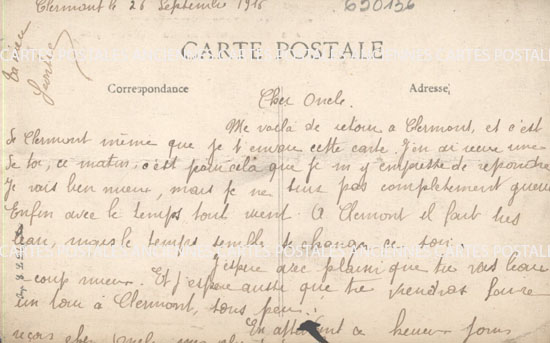 Clermont le 26 Septembre 1916
630136
CARTE POSTALE
Correspondance
Adresse
Cher Oncle.
Me voilà de retour à Clermont, et c'est
de Clermont même que je t'envoie cette carte. J'en ai recue une
de toi, ce matin, c'est pour cela que je m'y empresse de repondre
Je vais bien mieux, mais je ne suis pas complètement gueri
Enfin avec le temps tout vient. A Clermont il fait tres
beau, mais le temps semble changer ce soir.
J'espère avec plaisir que tu vas beau
-coup mieux. Et j'espère aussi que tu viendras faire
un tour à Clermont, sous peu.
En attendant ce heureux jour
reçois cher Oncle
CARTES POSTALES ANCIENNES CARTES POSTALES